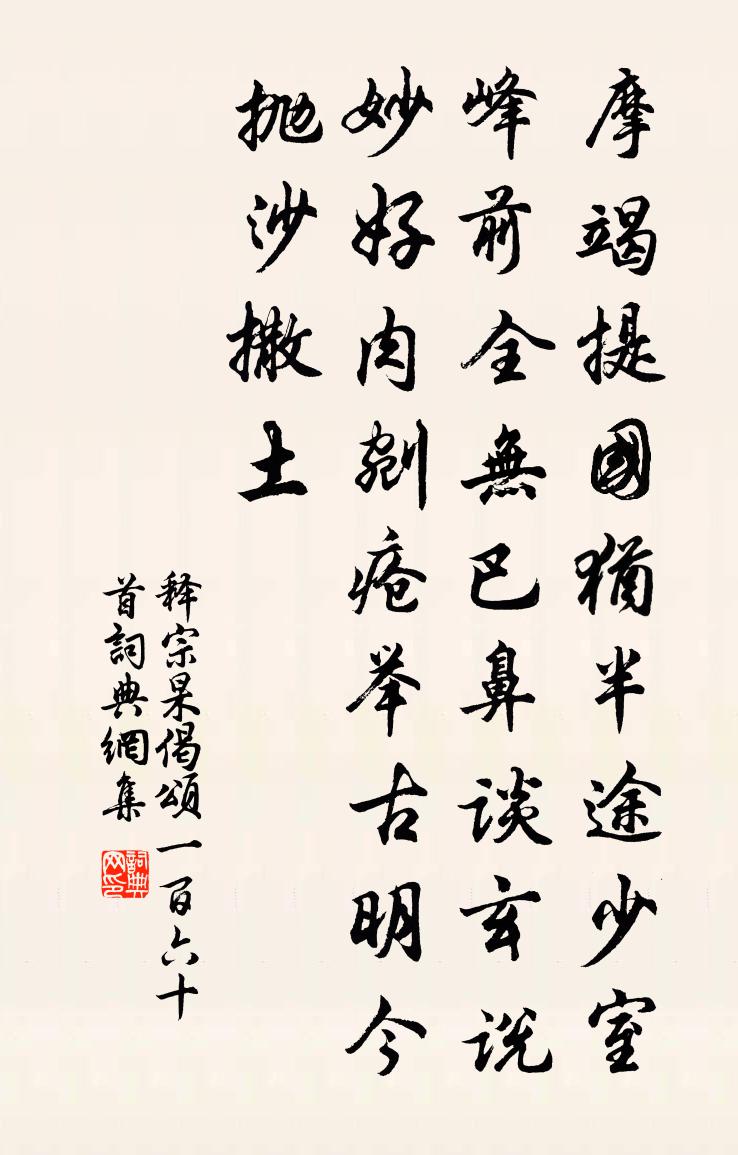 摩竭提國猶半途少室
峰前全無巴鼻談玄说
妙好肉剜瘡举古明今
抛沙撒土
释宗杲偈頌一百六十
首詞典網集
詞典网印